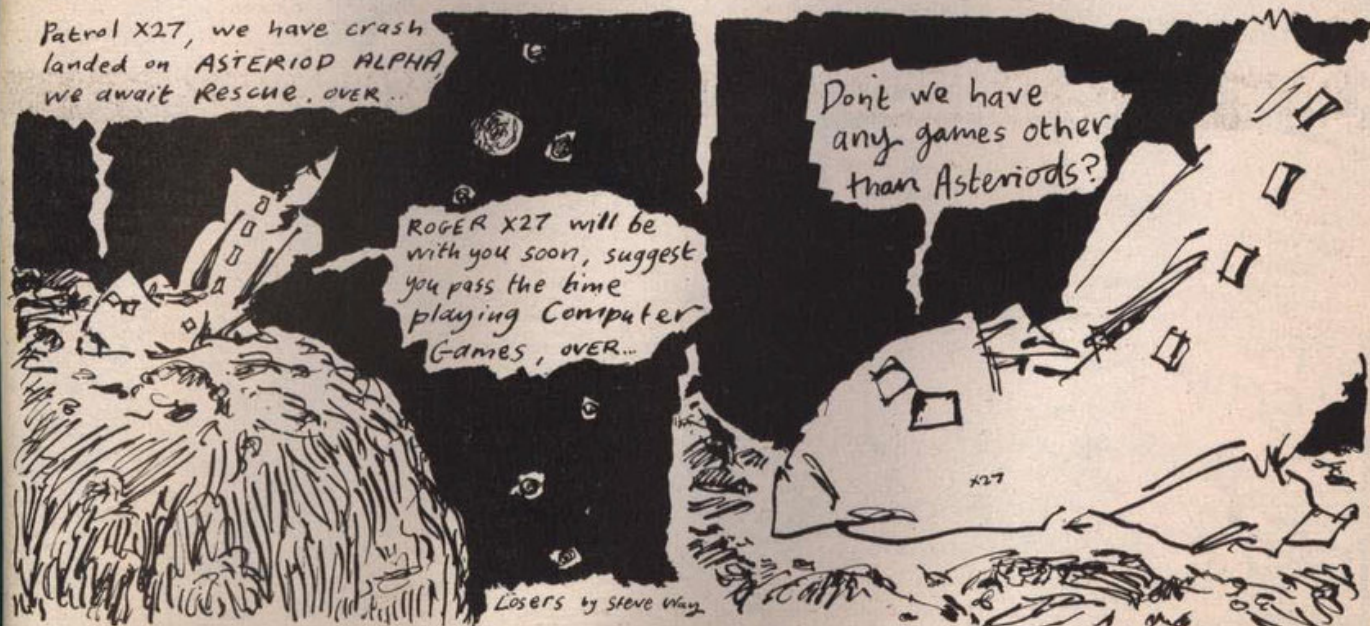 Patrol X27, we have crash
landed on ASTERIOD ALPHA,
we await Rescue. OVER...
ROGER X27 will be
with you soon, suggest
you pass the time
playing Computer
Games, OVER...
Losers by Steve Way
Dont we have
any games other
than Asteriods?
X27